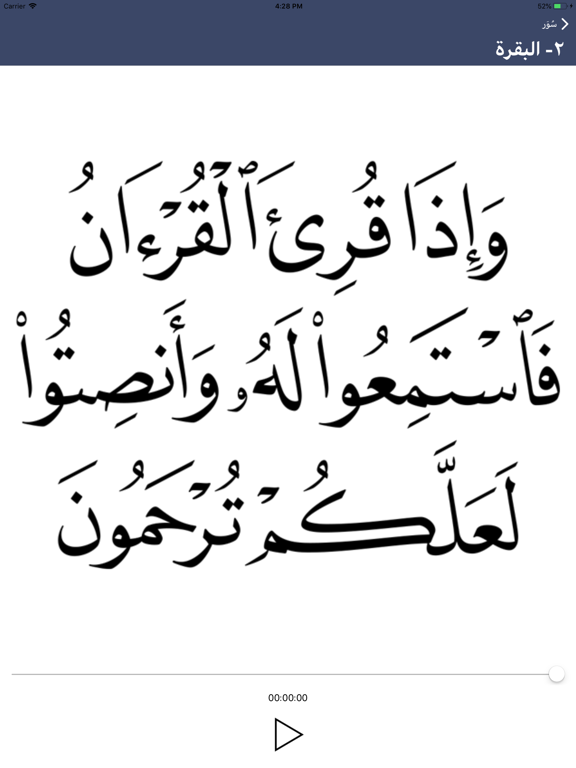 Carrier 4:28 PM 52%
سُوَر
٢- البقرة
وَإِذَا قُرِئَ ٱلْقُرْءَانُ
فَٱسْتَمِعُوا۟ لَهُۥ وَأَنصِتُوا۟
لَعَلَّكُمْ تُرْحَمُونَ
00:00:00